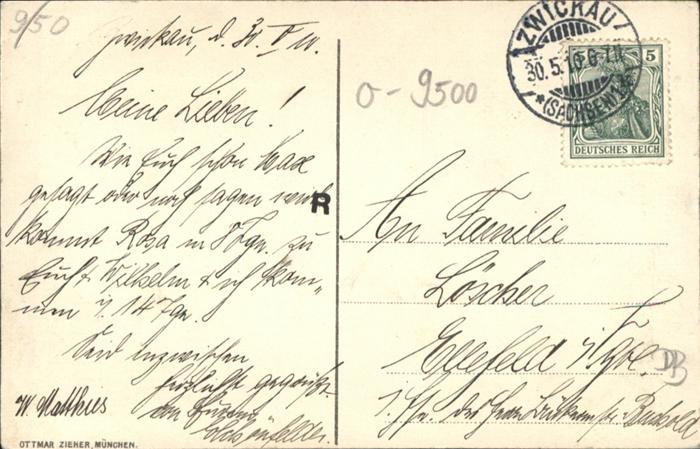 9/50
Zwickau, d. 30. V. 10.
Meine Lieben!
Wie Euch schon Max
gesagt oder noch sagen wird
kommt Rosa in 8 Tgn. zu
Euch & Wilhelm & ich kom-
men i. 14 Tgn.
Seid inzwischen
herzlichst gegrüßt
von Euren
W. Matthies
OTTMAR ZIEHER, MÜNCHEN.
R
o-9500
ZWICKAU
30.5.10.6-7
*(SACHSEN)1
5
DEUTSCHES REICH
An Familie
Löscher
Ellefeld i/Vgtl.
DB